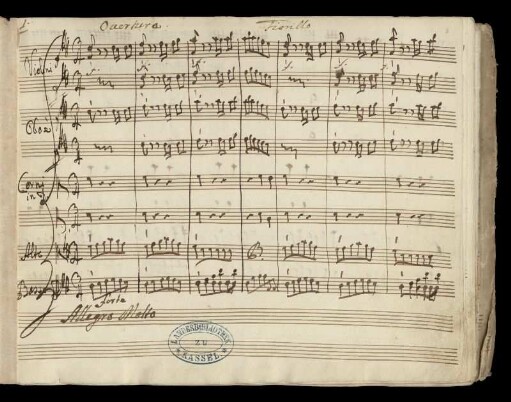 1. Overtura. Fiorillo
Violini
Oboe
Corni
in D
Alto
Basso
Forte
Allegro Molto
LANDESBIBLIOTHEK
ZU
KASSEL